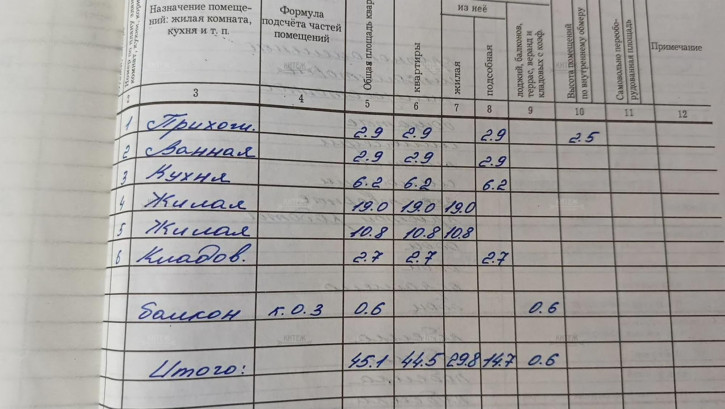 Назначение помеще-
ний: жилая комната,
кухня и т. п.
Формула
подсчёта частей
помещений
Общая площадь квар
из неё
квартиры
жилая
подсобная
лоджий, балконов,
террас, веранд и
кладовых с коэф.
Высота помещений
по внутреннему обмеру
Самовольно переобо-
рудованная площадь
Примечание
3 4 5 6 7 8 9 10 11 12
1 Прихож. 2.9 2.9 2.9 2.5
2 Ванная 2.9 2.9 2.9
3 Кухня 6.2 6.2 6.2
4 Жилая 19.0 19.0 19.0
5 Жилая 10.8 10.8 10.8
6 Кладов. 2.7 2.7 2.7
балкон к. 0.3 0.6 0.6
Итого: 45.1 44.5 29.8 14.7 0.6